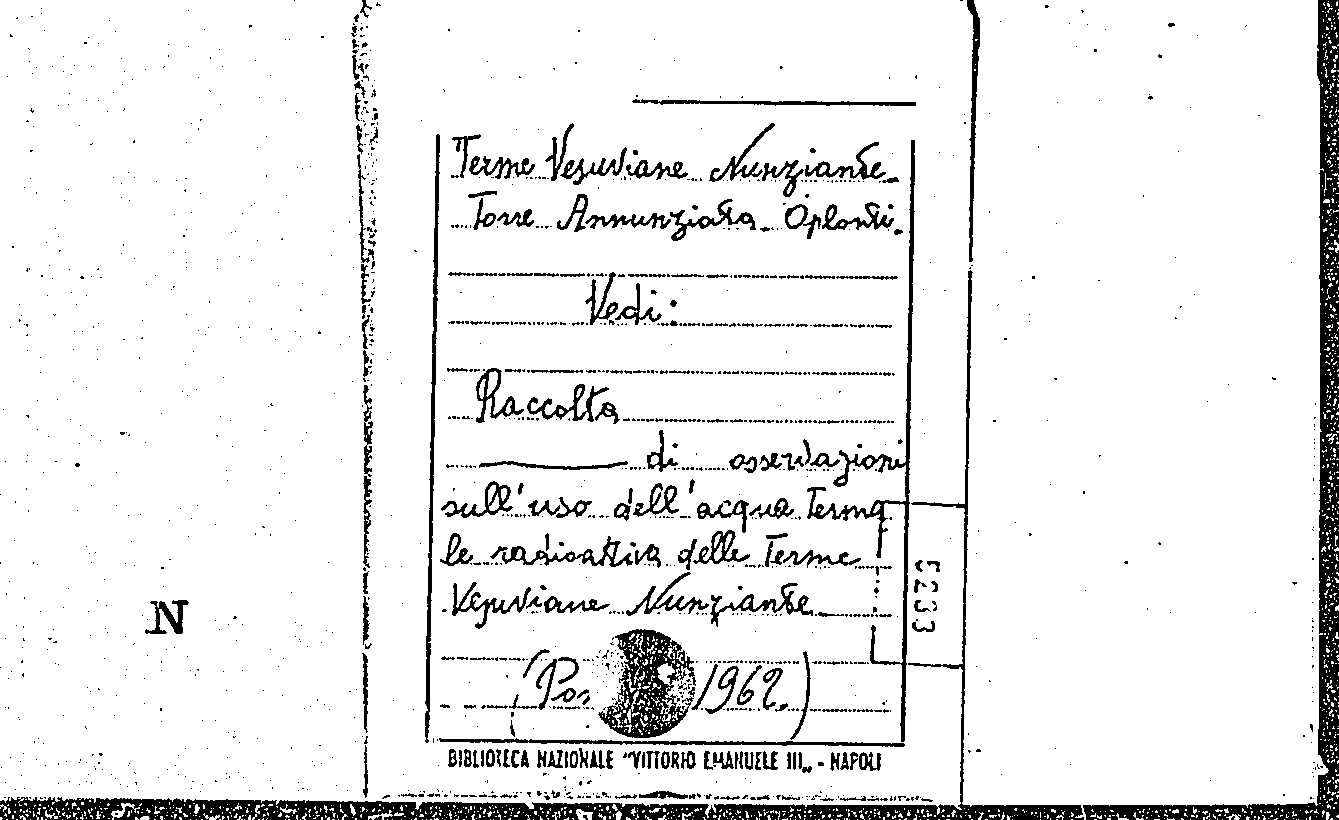 Terme Vesuviane Nunziante-
Torre Annunziata- Oplonti.
Vedi:
Raccolta
di osservazioni
sull'uso dell'acqua Terma
le radioattiva delle Terme
Vesuviane Nunziante
(Po 1962.)
5233
N
BIBLIOTECA NAZIONALE "VITTORIO EMANUELE III„ - NAPOLI